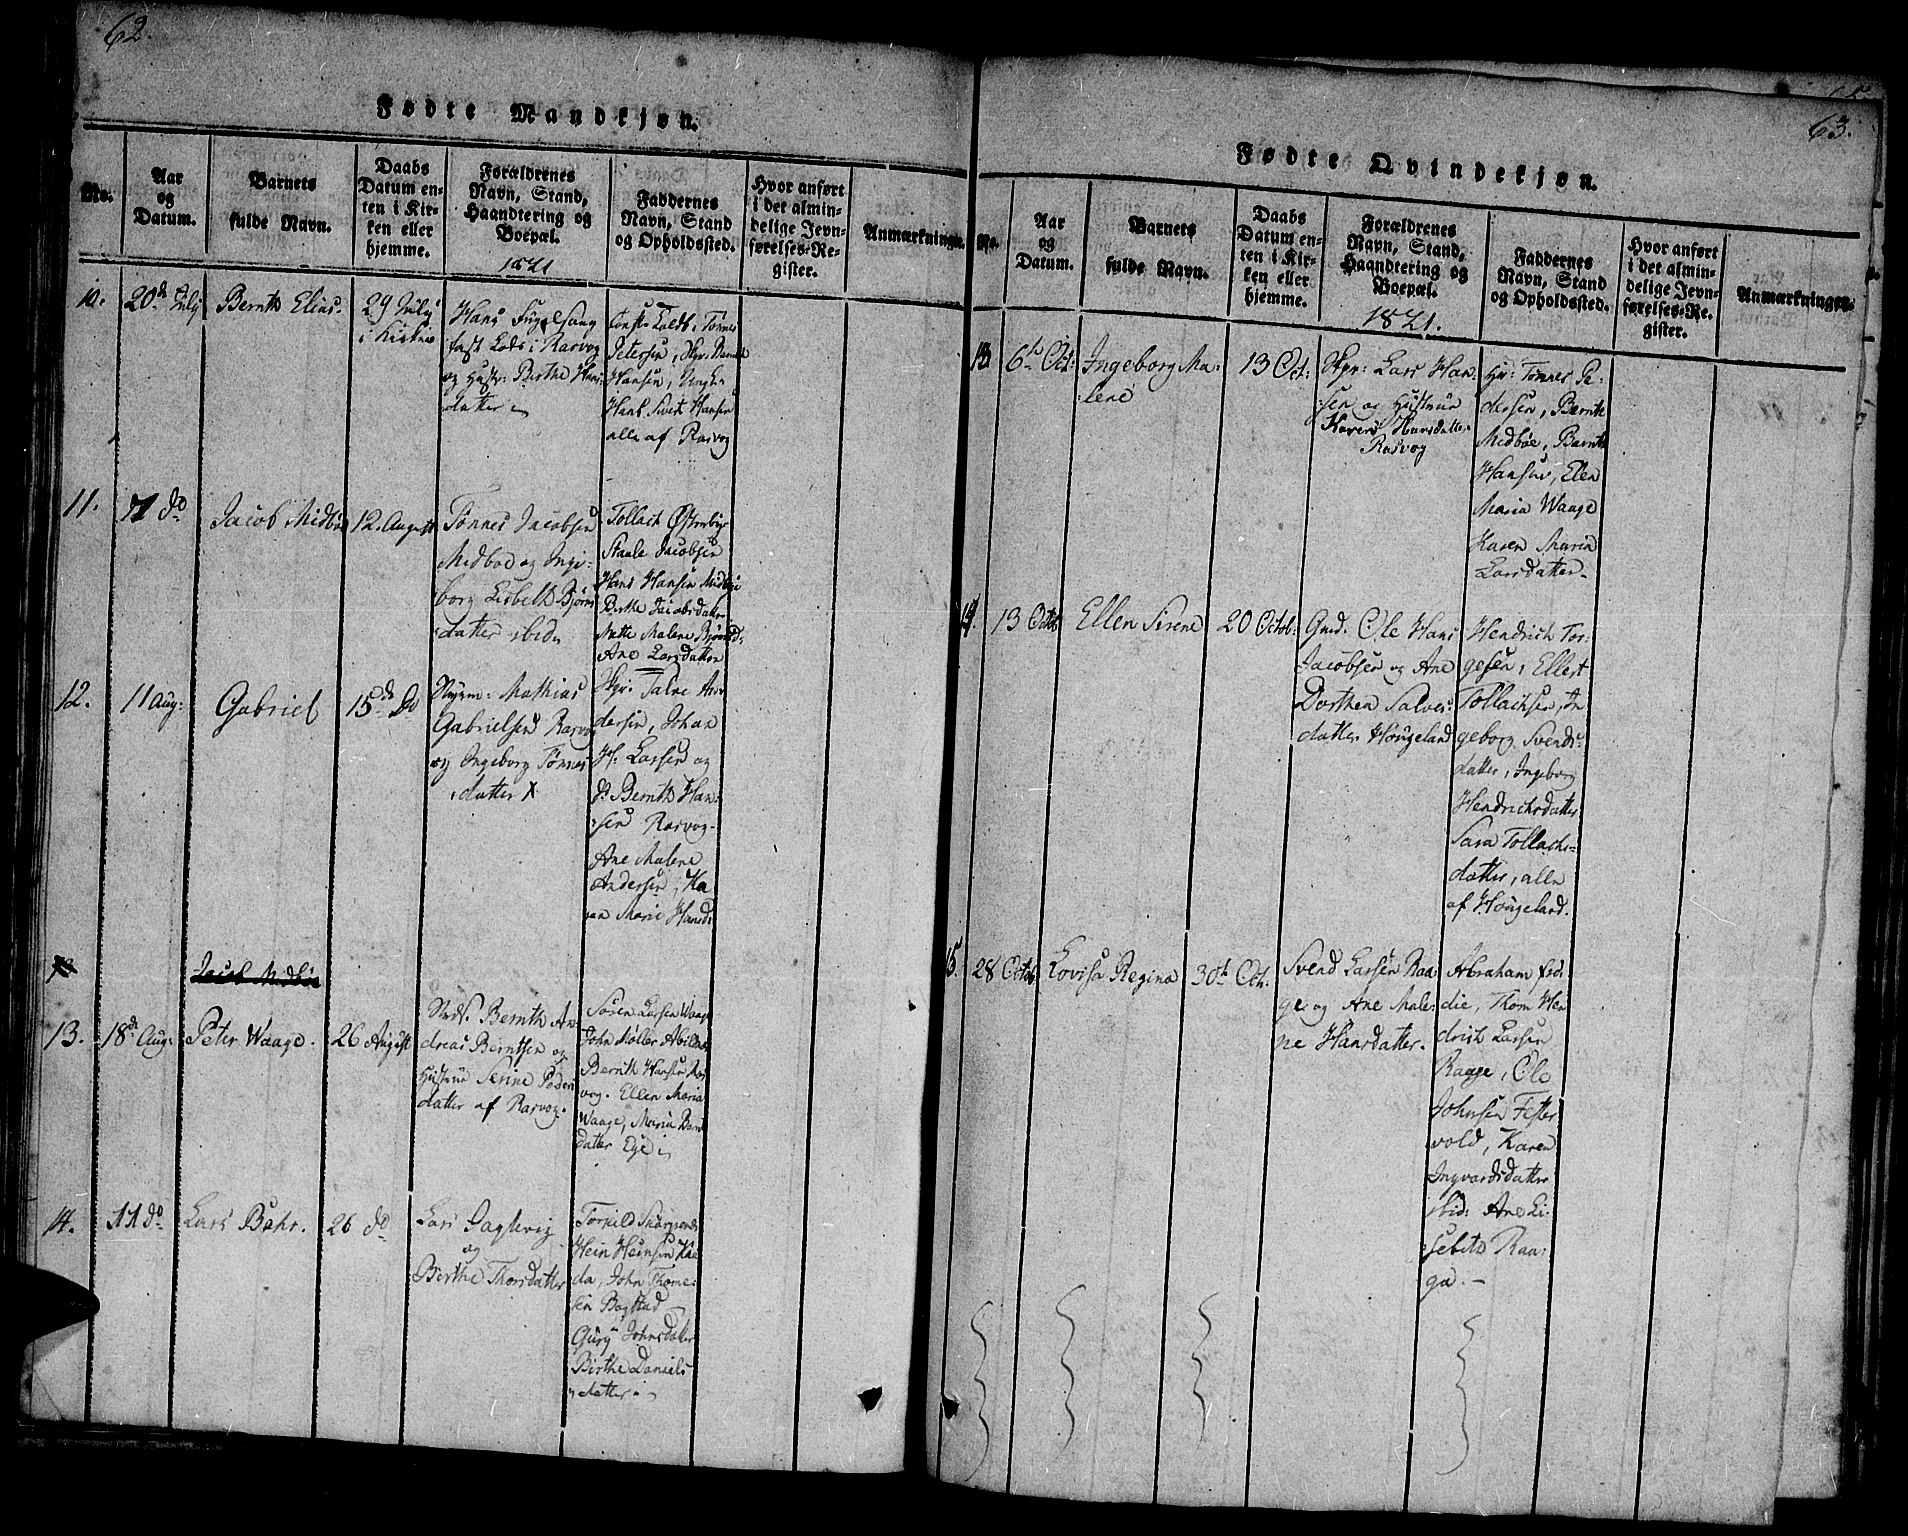 62.
Fødte Mandkjøn.
No.
Aar
og
Datum.
Barnets
fulde Navn.
Daabs
Datum en-
ten i Kir-
ken eller
hjemme.
Forældrenes
Navn, Stand,
Haandtering og
Boepæl.
1821
Faddernes
Navn, Stand
og Opholdssted.
Hvor anført
i det almin-
delige Jevn-
førelses-Re-
gister.
Anmærkninger.
10.
20de July
Bernth Elias.
29 July
i Kirken
Hans Fugelsang
fast Lods i Rasvog
og Hustr: Berthe Hans
datter
Tønnes
Petersen, Skpr: Berndt
Hansen, Ungk:
Hans Sivert Hansen
alle af Rasvog
11.
do
Jacob Midbøe
12. August
Tønnes Jacobsen
Medboe og Inge:
borg Lisbeth Bjørns
datter ibid.
Tollach Østenbye
Staale Jacobsen
Hans Hansen Midbøe
Berthe Jacobsdatter
Mette Malene Bjørnsd:
Ane Larsdatter
12.
11 Aug:
Gabriel
15de Do
Mathias
Gabrielsen Rasvog
og Ingeborg Tønnes
datter
Skpr: Salve An
dersen, Johan
H: Larsen og
Bernth Han:
sen Rasvog
Ane Malene
Andersen, Ka
ren Marie Hansd:
Jacob Midbøe
13.
18de Aug:
Peter Waage.
26 August
Bernth An
dreas Berntsen og
Hustrue Serine Peders
datter af Rasvog.
Søren Larsen Waage
John Møller Abilsnes
Bernth Hansen Ras
vog. Ellen Maria
Waage, Maria
datter Eje
14.
11 do
Lars Bahr.
26 do
Lars
og
Birthe Thorsdatter
Torkild
Hein Heinsen
da, John Thome:
sen Bogstad
Gury Johnsdatter
Birthe Daniels
datter
63.
Fødte Qvindekjøn.
No.
Aar
og
Datum.
Barnets
fulde Navn.
Daabs
Datum en-
ten i Kir-
ken eller
hjemme.
Forældrenes
Navn, Stand,
Haandtering og
Boepæl.
1821.
Faddernes
Navn, Stand
og Opholdssted.
Hvor anført
i det almin-
delige Jevn-
førelses-Re-
gister.
Anmærkninger.
13.
6te Oct:
Ingeborg Ma:
lene
13 Oct:
Skpr: Lars Han:
sen og Hustrue
Karen Hansdatter
Rasvog
Hr: Tønnes Pe:
dersen, Bernth
Midbøe, Bernth
Hansen, Ellen
Maria Waage
Karen Maria
Larsdatter.
14.
13 Octob
Ellen Sirene
20 Octob:
Gmd. Ole Hans
Jacobsen og Ane
Dorthea Salves:
datter Hougeland
Hendrich Tor:
gesen, Ellert
Tollachsen, In
geborg Svends:
datter, Ingeborg
Hendrichsdatter
Sara Tollachs:
datter, alle
af Hougeland.
15.
28 Octob
Lovisa Regina
30te Oct.
Svend Larsen Raa
ge og Ane Male:
ne Hansdatter.
Abraham
die, Thom Hen
drich Larsen
Raage, Ole
Johnsen Fetter
vold, Karen
Ingvardsdatter
ibid: Ane Li:
sebith Raa:
ga.